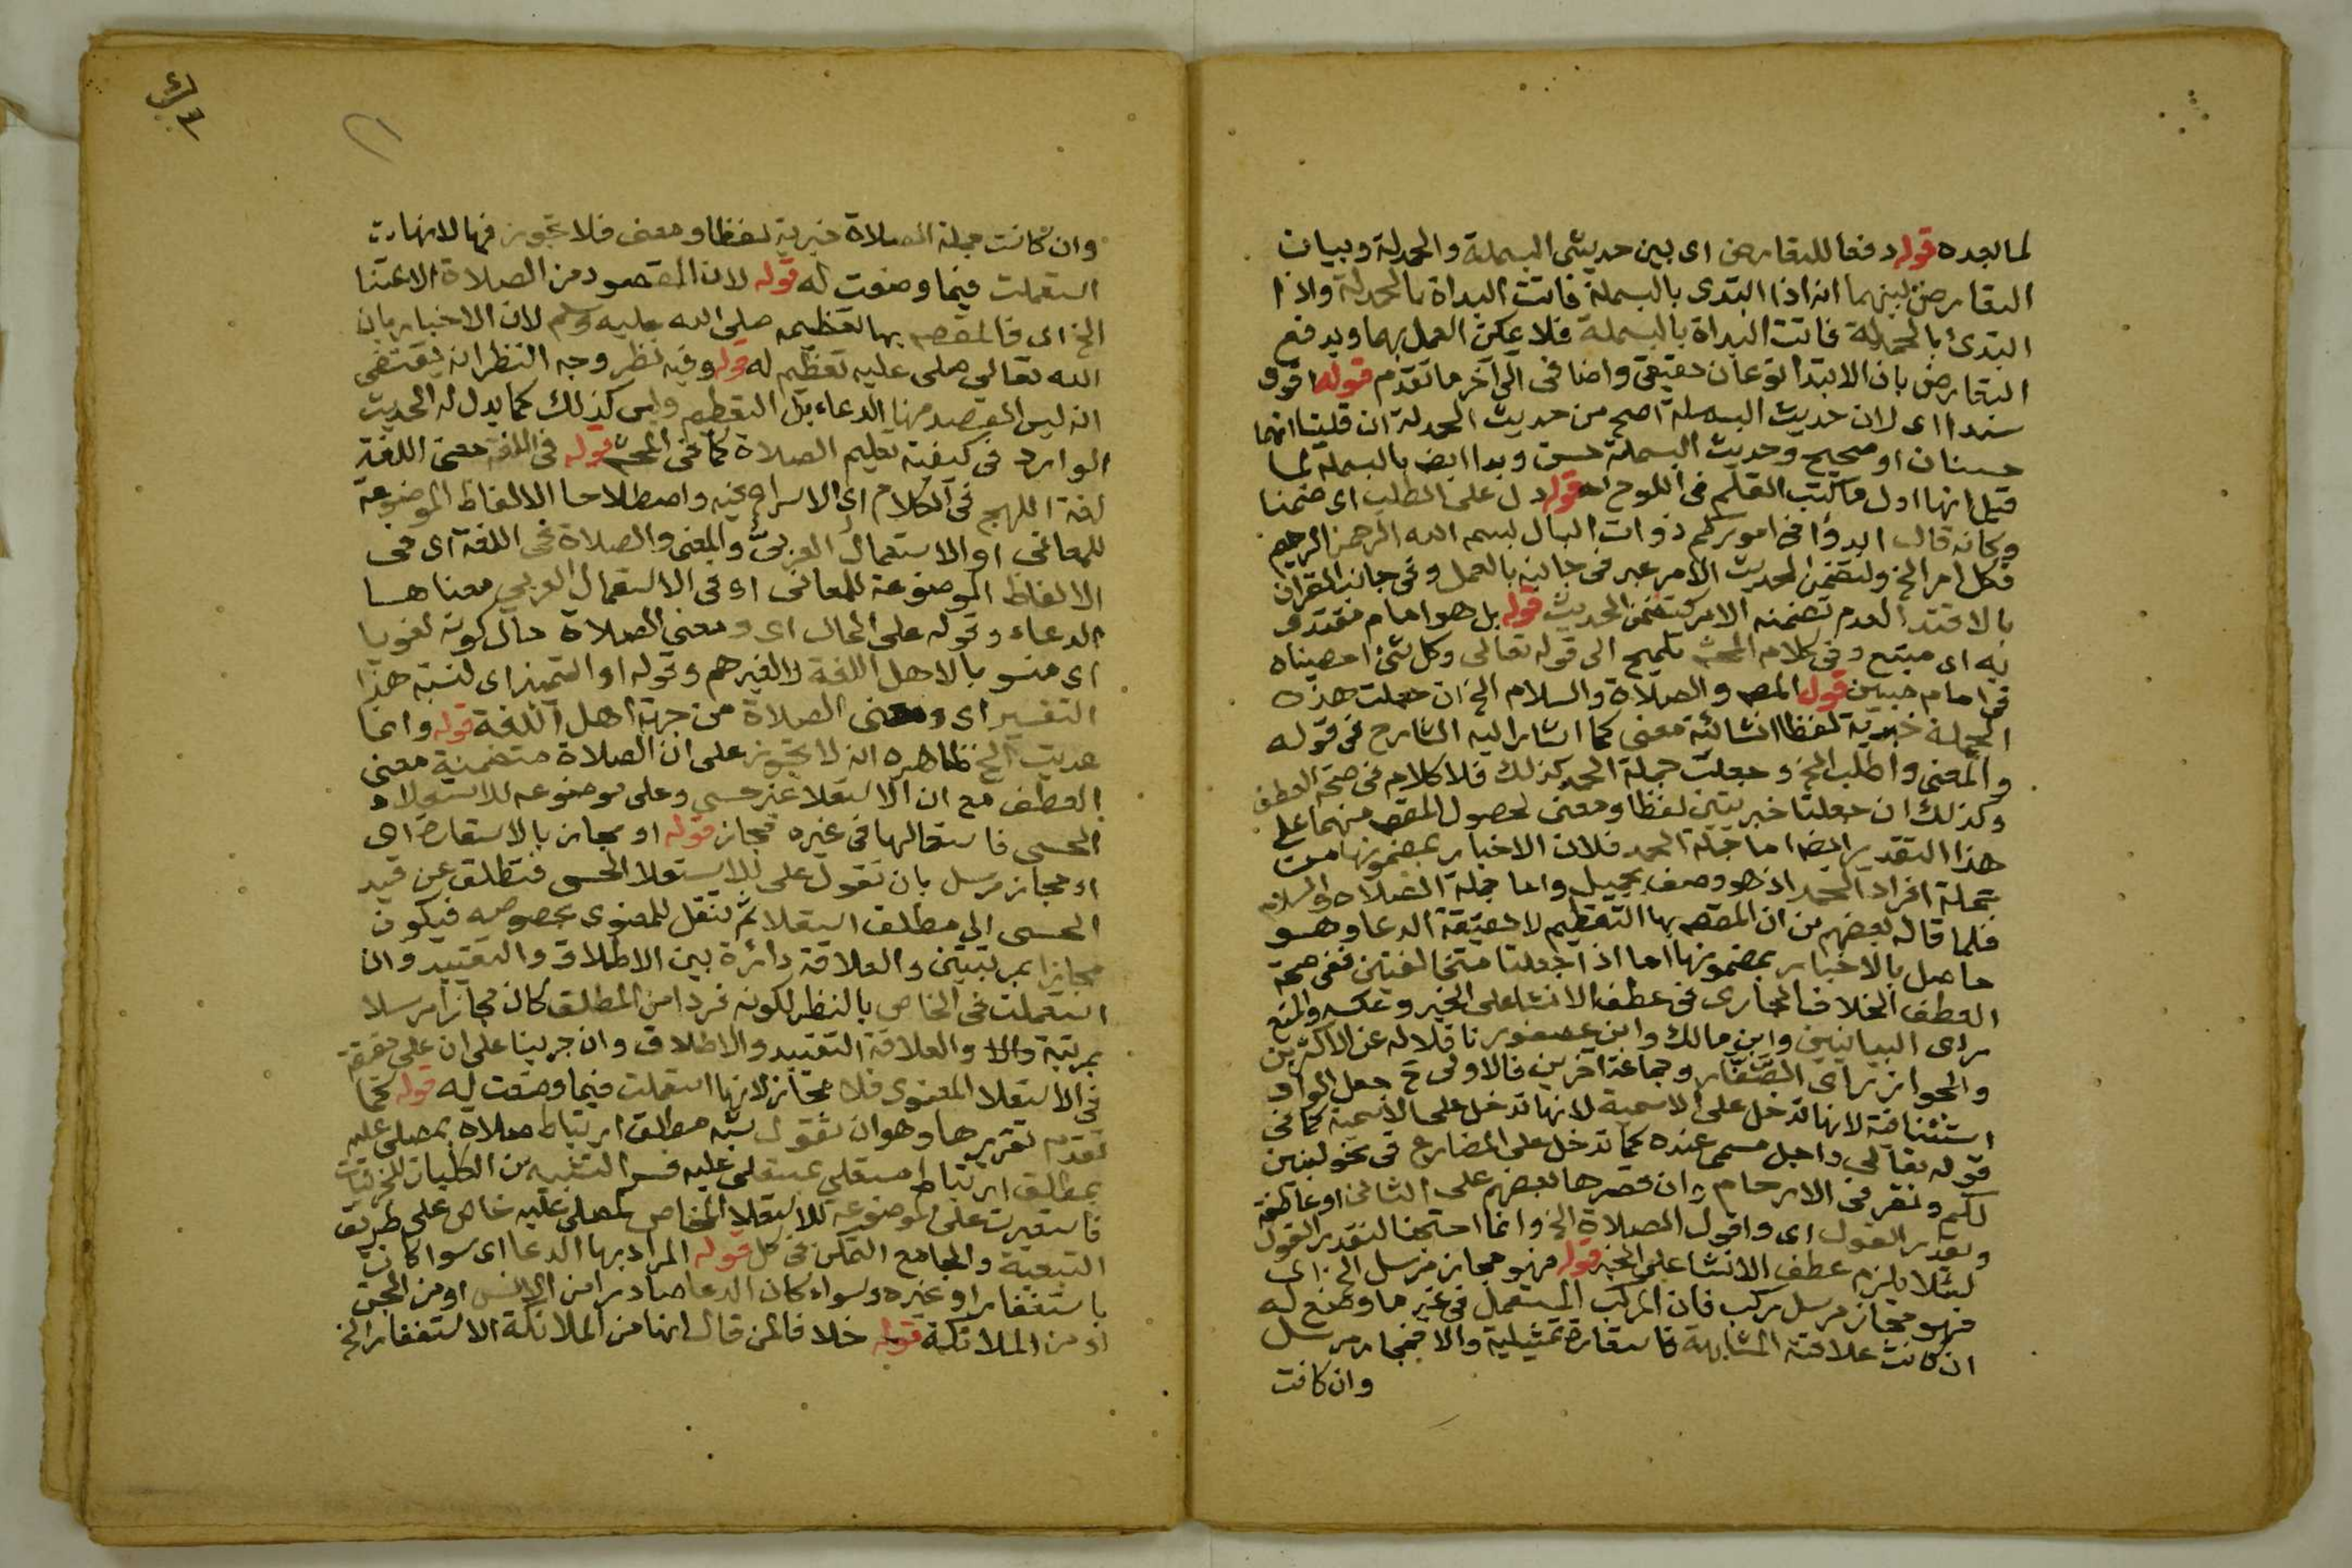 لما بعده قوله دفعا للتعارض اى بين حديثى البسملة والحمدلة وبيان
التعارض بينهما انه اذا ابتدى بالبسملة فاتت البداة بالحمدلة واذا
ابتدئ بالحمدلة فاتت البداة بالبسملة فلا يمكن العمل بهما ويدفع
التعارض بان الابتدا نوعان حقيقى واضافى الى آخر ما تقدم قوله اقوى
سندا اى لان حديث البسملة اصح من حديث الحمدلة ان قلنا انهما
حسنان او صحيح وحديث البسملة حسن وبدا ايضا بالبسملة لما
قيل انها اول ما كتب القلم فى اللوح اهـ قوله دل على الطلب اى ضمنا
وكانه قال ابدؤا فى اموركم ذوات البال ببسم الله الرحمن الرحيم
فكل امر الخ ولتضمن الحديث الامر عبر فى جانبه بالعمل وفى جانب القرآن
بالاقتدا لعدم تضمنه الامر كتضمن الحديث قوله بل هو امام مقتدى
به اى متبع وفى كلام المحشى تلميح الى قوله تعالى وكل شئ احصيناه
فى امام مبين قول المص والصلاة والسلام الخ ان جعلت هذه
الجملة خبرية لفظا انشائية معنى كما اشار اليه الشارح فى قوله
والمعنى واطلب الخ وجعلت جملة الحمد كذلك فلا كلام فى صحة العطف
وكذلك ان جعلتا خبريتين لفظا ومعنى لحصول المقص منهما على
هذا التقدير ايضا اما جملة الحمد فلان الاخبار بمضمونها من
جملة افراد الحمد اذ هو وصف بجميل واما جملة الصلاة والسلام
فلما قاله بعضهم من ان المقص بها التعظيم لا حقيقة الدعا وهو
حاصل بالاخبار بمضمونها اما اذا جعلتا متخالفتين ففى صحة
العطف الخلاف الجارى فى عطف الانشا على الخبر وعكسه والمنع
راى البيانيين وابن مالك وابن عصفور ناقلا له عن الاكثرين
والجواز راى الصفار وجماعة آخرين فالاولى ح جعل الواو
استئنافية لانها تدخل على الاسمية لانها تدخل على الاسمية كما فى
قوله تعالى واجل مسمى عنده كما تدخل على المضارع فى نحو لنبين
لكم ونقر فى الارحام وان قصرها بعضهم على الثانى او عاطفة
وتقدير القول اى واقول الصلاة الخ وانما احتجنا لتقدير القول
لئلا يلزم عطف الانشا على الخبر قوله فهو مجاز مرسل الخ اى
فهو مجاز مرسل مركب فان المركب المستعمل فى غير ما وضع له
ان كانت علاقته المشابهة فاستعارة تمثيلية والا فمجاز مرسل
وان كانت
وان كانت جملة الصلاة خبرية لفظا ومعنى فلا تجوز فيها لانها
استعملت فيما وضعت له قوله لان المقصود من الصلاة الاعتنا
الخ اى فالمقص بها تعظيمه صلى الله عليه وسلم لان الاخبار بان
الله تعالى صلى عليه تعظيم له قوله وفيه نظر وجه النظر انه يقتضى
انه ليس القصد منها الدعاء بل التعظيم وليس كذلك كما يدل له الحديث
الوارد فى كيفية تعليم الصلاة كما فى المحشى قوله فى اللغة معنى اللغة
لغة اللهج فى الكلام اى الاسراع فيه واصطلاحا الالفاظ الموضوعة
للمعانى او الاستعمال العربى والمعنى والصلاة فى اللغة اى فى
الالفاظ الموضوعة للمعانى او فى الاستعمال العربى معناها
الدعاء وقوله على الحال اى ومعنى الصلاة حال كونه لغويا
اى منسوبا لاهل اللغة لا لغيرهم وقوله او التمييز اى لنسبة هذا
التفسير اى ومعنى الصلاة من جهة اهل اللغة قوله وانما
عديت الخ ظاهره انه لا تجوز على ان الصلاة متضمنة معنى
العطف مع ان الاستعلا غير حسى وعلى موضوعه للاستعلاء
الحسى فاستعمالها فى غيره مجاز قوله او مجاز بالاستعارة اى
او مجاز مرسل بان تقول على للاستعلا الحسى فتطلق عن قيد
الحسى الى مطلق استعلا ثم تنقل للمعنوى بخصوصه فيكون
مجازا بمرتبتين والعلاقة دائرة بين الاطلاق والتقييد وان
استعملت فى الخاص بالنظر لكونه فردا من المطلق كان مجازا مرسلا
بمرتبة والعلاقة التقييد والاطلاق وان جرينا على ان على حقيقة
فى الاستعلا المعنوى فلا مجاز لانها استعملت فيما وضعت له قوله كما
تقدم تقريرها وهو ان تقول شبه مطلق ارتباط صلاة بمصلى عليه
بمطلق ارتباط مستعلى بمستعلى عليه فسرى التشبيه من الكليات للجزئيات
فاستعيرت على الموضوعة للاستعلا الخاص لمصلى عليه خاص على طريق
التبعية والجامع التمكن فى كل قوله المراد بها الدعا اى سوا كانت
باستغفار او غيره وسواء كان الدعا صادرا من الانس او من الجن
او من الملائكة قوله خلافا لمن قال انها من الملائكة الاستغفار الخ